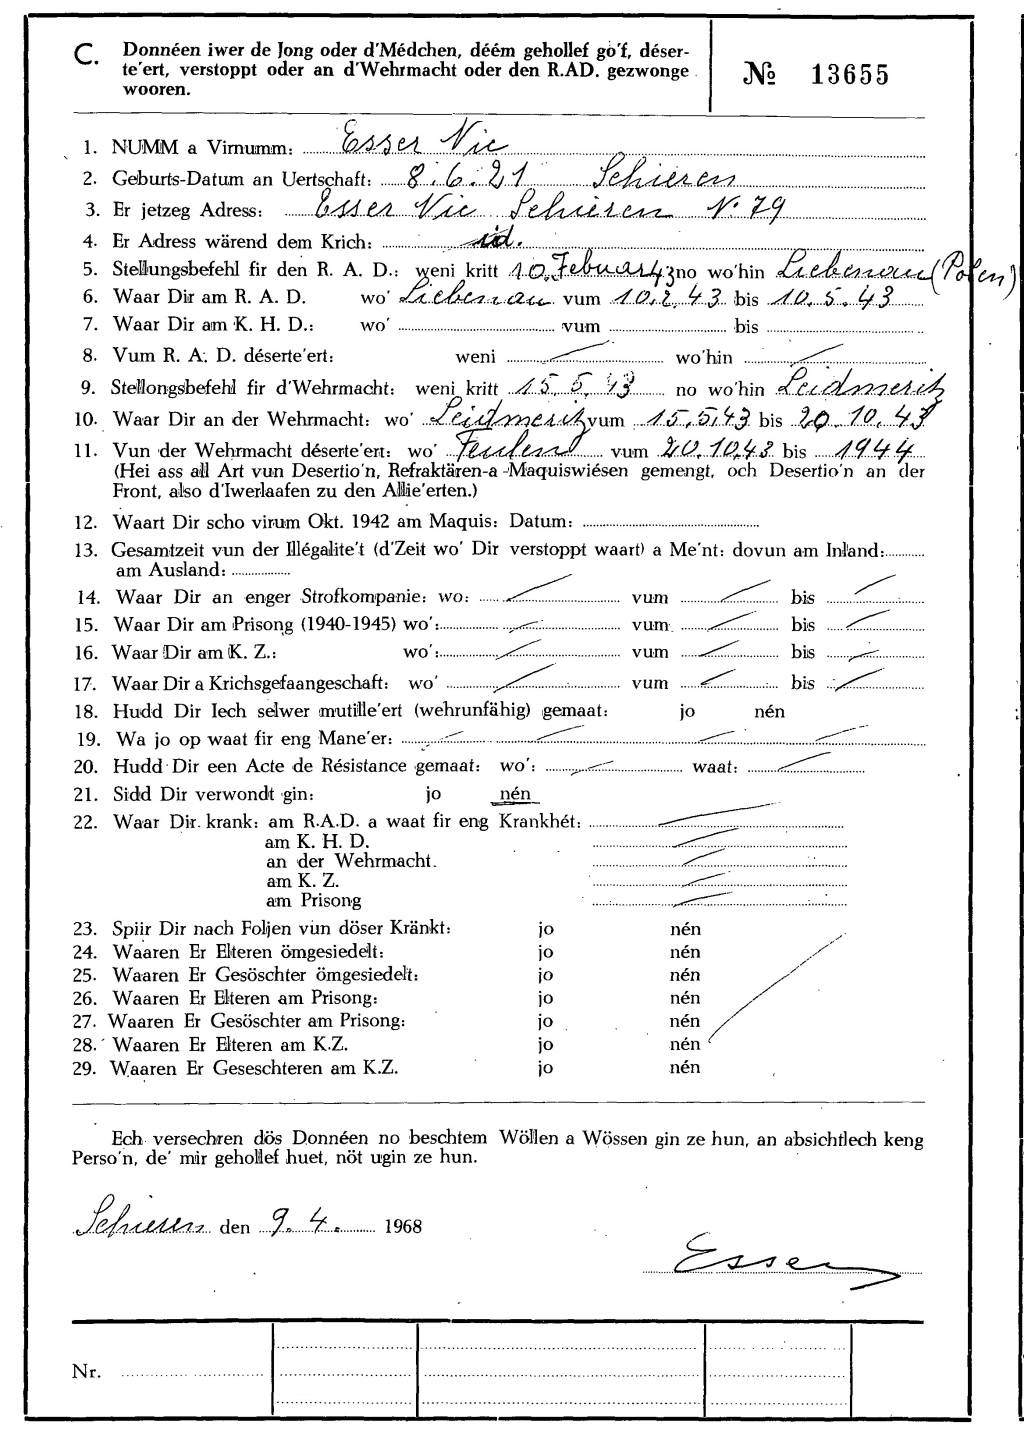 C. Donnéen iwer de Jong oder d'Médchen, déém gehollef go'f, déser-
te'ert, verstoppt oder an d'Wehrmacht oder den R.AD. gezwonge
wooren.
№ 13655
1. NUMM a Virnumm: Esser Nic
2. Geburts-Datum an Uertschaft: 8.6.21 Schieren
3. Er jetzeg Adress: Esser Nic Schieren N° 79
4. Er Adress wärend dem Krich: id.
5. Stellungsbefehl fir den R. A. D.: weni kritt 10. Februar 43 no wo'hin Liebenau (Polen)
6. Waar Dir am R. A. D. wo' Liebenau vum 10.2.43 bis 10.5.43
7. Waar Dir am K. H. D.: wo' vum bis
8. Vum R. A. D. déserte'ert: weni wo'hin
9. Stellongsbefehl fir d'Wehrmacht: weni kritt 15.5.43 no wo'hin Leidmeritz
10. Waar Dir an der Wehrmacht: wo' Leidmeritz vum 15.5.43 bis 20.10.43
11. Vun der Wehrmacht déserte'ert: wo' Feulen vum 20.10.43 bis 1944
(Hei ass all Art vun Desertio'n, Refraktären-a -Maquiswiésen gemengt, och Desertio'n an der
Front, also d'Iwerlaafen zu den Allie'erten.)
12. Waart Dir scho virum Okt. 1942 am Maquis: Datum:
13. Gesamtzeit vun der Illégalite't (d'Zeit wo' Dir verstoppt waart) a Me'nt: dovun am Inland:
am Ausland:
14. Waar Dir an enger Strofkompanie: wo: vum bis
15. Waar Dir am Prisong (1940-1945) wo': vum bis
16. Waar Dir am K. Z.: wo': vum bis
17. Waar Dir a Krichsgefaangeschaft: wo' vum bis
18. Hudd Dir Iech selwer mutille'ert (wehrunfähig) gemaat: jo nén
19. Wa jo op waat fir eng Mane'er:
20. Hudd Dir een Acte de Résistance gemaat: wo': waat:
21. Sidd Dir verwondt gin: jo nén
22. Waar Dir krank: am R.A.D. a waat fir eng Krankhét:
am K. H. D.
an der Wehrmacht.
am K. Z.
am Prisong
23. Spiir Dir nach Foljen vun döser Kränkt: jo nén
24. Waaren Er Elteren ömgesiedelt: jo nén
25. Waaren Er Gesöschter ömgesiedelt: jo nén
26. Waaren Er Elteren am Prisong: jo nén
27. Waaren Er Gesöschter am Prisong: jo nén
28. Waaren Er Elteren am K.Z. jo nén
29. Waaren Er Geseschteren am K.Z. jo nén
Ech versechren dös Donnéen no beschtem Wöllen a Wössen gin ze hun, an absichtlech keng
Perso'n, de' mir gehollef huet, nöt ugin ze hun.
Schieren den 9.4. 1968
Esser
Nr.